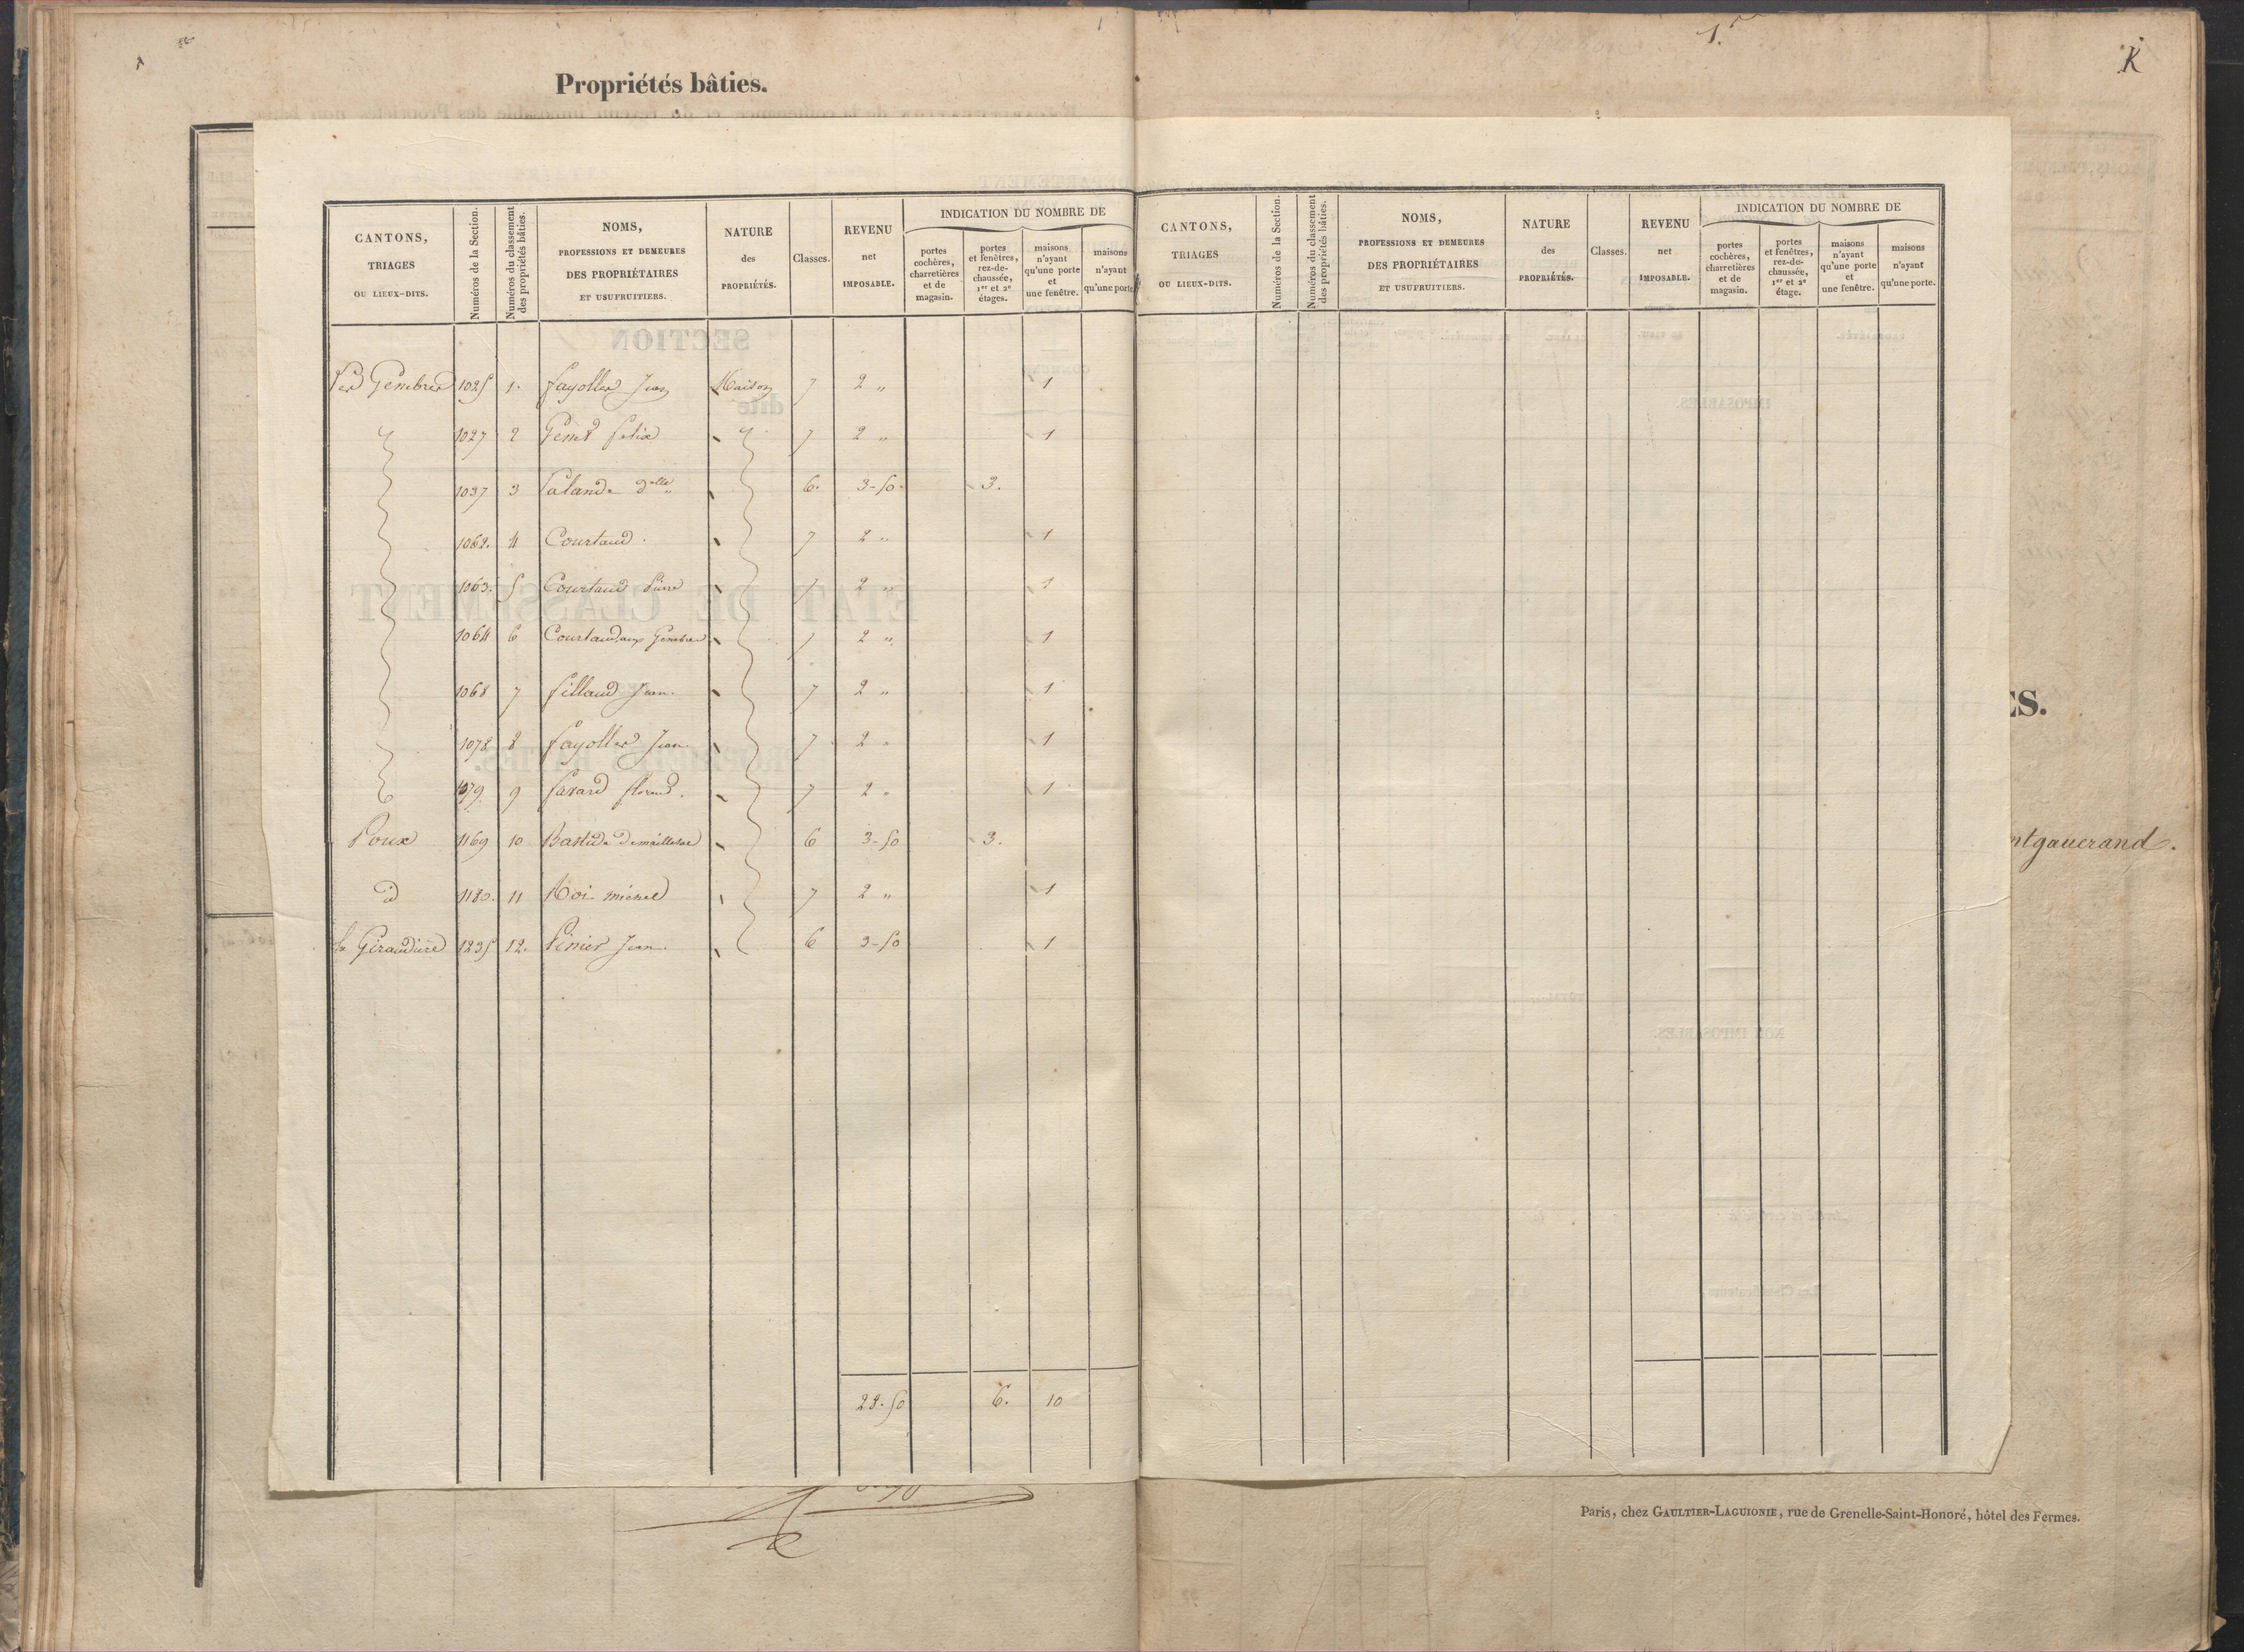 Propriétés bâties.
1.
K
CANTONS, TRIAGES OU LIEUX-DITS.
Numéros de la Section.
Numéros du classement des propriétés bâties.
NOMS, PROFESSIONS ET DEMEURES DES PROPRIÉTAIRES ET USUFRUITIERS.
NATURE des PROPRIÉTÉS.
Classes.
REVENU net IMPOSABLE.
INDICATION DU NOMBRE DE
portes cochères, charretières et de magasin.
portes et fenêtres, rez-de-chaussée, 1er et 2e étages.
maisons n'ayant qu'une porte et une fenêtre.
maisons n'ayant qu'une porte
Les Gembres 1025 1. fayolles Jean Maison 7 2 " 1
1027 2 Felix 7 2 " 1
1037 3 Lalande dlle 6. 3-50 3.
1062. 4 Courtaud. 7 2 " 1
1063. 5 Courtaud Pierre 7 2 " 1
1064 6 Courtaud aux Gembres 7 2 " 1
1068 7 fillaud Jean. 7 2 " 1
1078 8 fayolles Jean. 7 2 " 1
1079 9 favard 7 2 " 1
Poux 1169 10 Bastide 6 3-50 3.
d 1180. 11 Roi michel 7 2 " 1
la Giraudière 1235 12. Pinier Jean. 6 3-50 1
28.50 6. 10
CANTONS, TRIAGES OU LIEUX-DITS.
Numéros de la Section.
Numéros du classement des propriétés bâties.
NOMS, PROFESSIONS ET DEMEURES DES PROPRIÉTAIRES ET USUFRUITIERS.
NATURE des PROPRIÉTÉS.
Classes.
REVENU net IMPOSABLE.
INDICATION DU NOMBRE DE
portes cochères, charretières et de magasin.
portes et fenêtres, rez-de-chaussée, 1er et 2e étage.
maisons n'ayant qu'une porte et une fenêtre.
maisons n'ayant qu'une porte.
ES.
ntgauerand.
Paris, chez GAULTIER-LAGUIONIE, rue de Grenelle-Saint-Honoré, hôtel des Fermes.